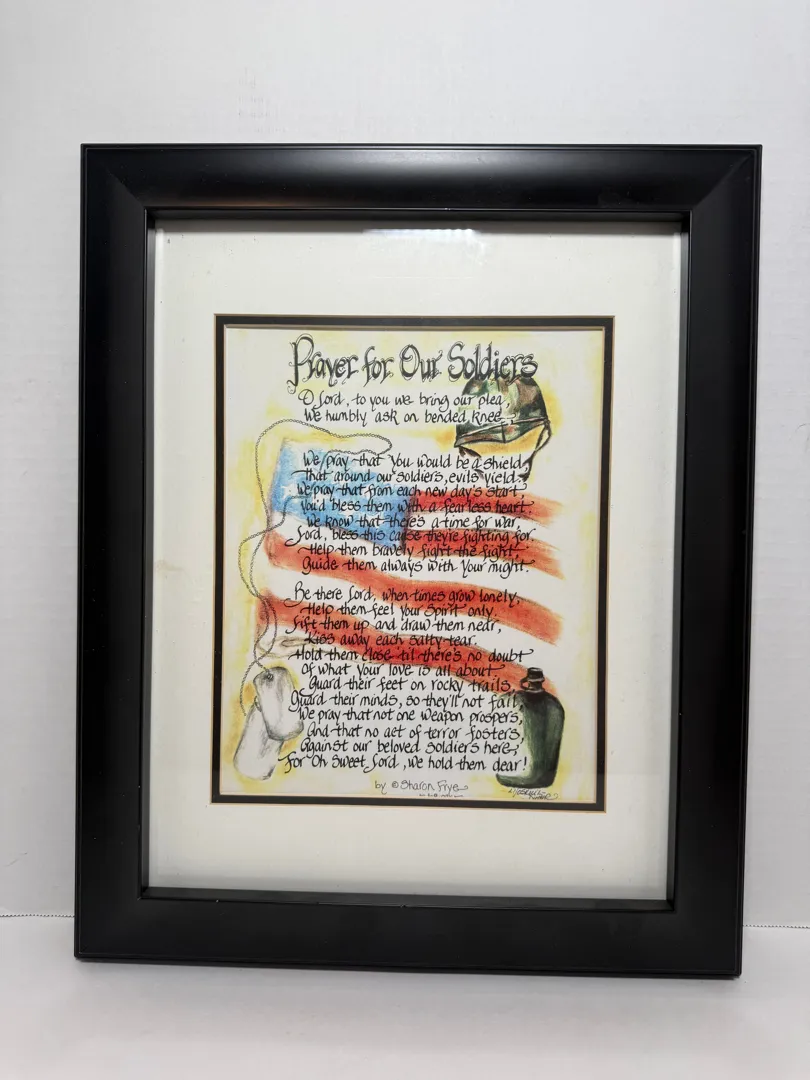 Prayer for Our Soldiers
O Lord, to you we bring our plea,
We humbly ask on bended knee,
We pray that You would be a shield,
that around our soldiers, evils yield.
We pray that from each new day's start,
You'd bless them with a fearless heart.
We know that there's a time for war,
Lord, bless this cause they're fighting for.
Help them bravely fight the fight,
Guide them always with Your might.
Be there Lord, when times grow lonely,
Help them feel Your Spirit only.
Lift them up and draw them near,
Kiss away each salty tear.
Hold them close 'til there's no doubt
Of what Your love is all about.
Guard their feet on rocky trails,
Guard their minds, so they'll not fail.
We pray that not one weapon prospers,
And that no act of terror fosters,
Against our beloved soldiers here,
For Oh Sweet Lord, we hold them dear!
by © Sharon Frye